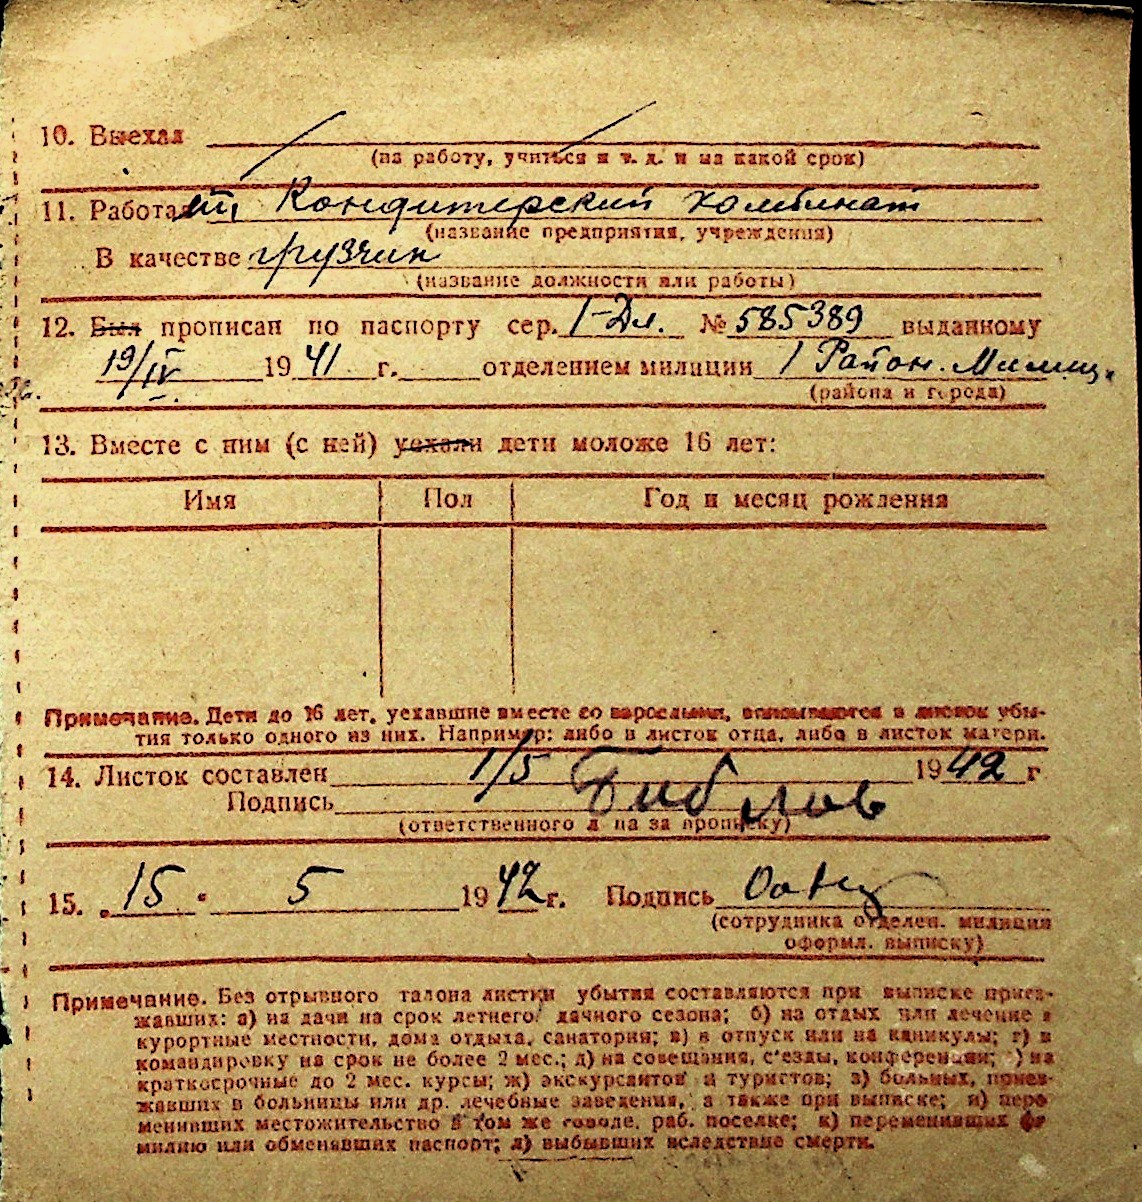 10. Выехал
(на работу, учиться и т. д. и на какой срок)
11. Работает, Кондитерский комбинат
(название предприятия, учреждения)
В качестве грузчик
(название должности или работы)
12. Был прописан по паспорту сер. 1-Дл. № 585389 выданному
19/IV 1941 г. отделением милиции 1 Район. Милиц.
(района и города)
13. Вместе с ним (с ней) уехали дети моложе 16 лет:
Имя Пол Год и месяц рождения
Примечание. Дети до 16 лет, уехавшие вместе со взрослыми, вписываются в листок убы-
тия только одного из них. Например: либо в листок отца, либо в листок матери.
14. Листок составлен 1/5 1942 г
Подпись
(ответственного л ца за прописку)
15. 15 5 1942 г. Подпись
(сотрудника отделен. милиции
оформл. выписку)
Примечание. Без отрывного талона листки убытия составляются при выписке приез-
жавших: а) на дачи на срок летнего дачного сезона; б) на отдых или лечение в
курортные местности, дома отдыха, санатория; в) в отпуск или на каникулы; г) в
командировку на срок не более 2 мес.; д) на совещания, с'езды, конференции; ) на
краткосрочные до 2 мес. курсы; ж) экскурсантов и туристов; з) больных, приез-
жавших в больницы или др. лечебные заведения, а также при выписке; и) пере
менивших местожительство в том же городе, раб. поселке; к) переменивших фа
милию или обменявших паспорт; л) выбывших вследствие смерти.